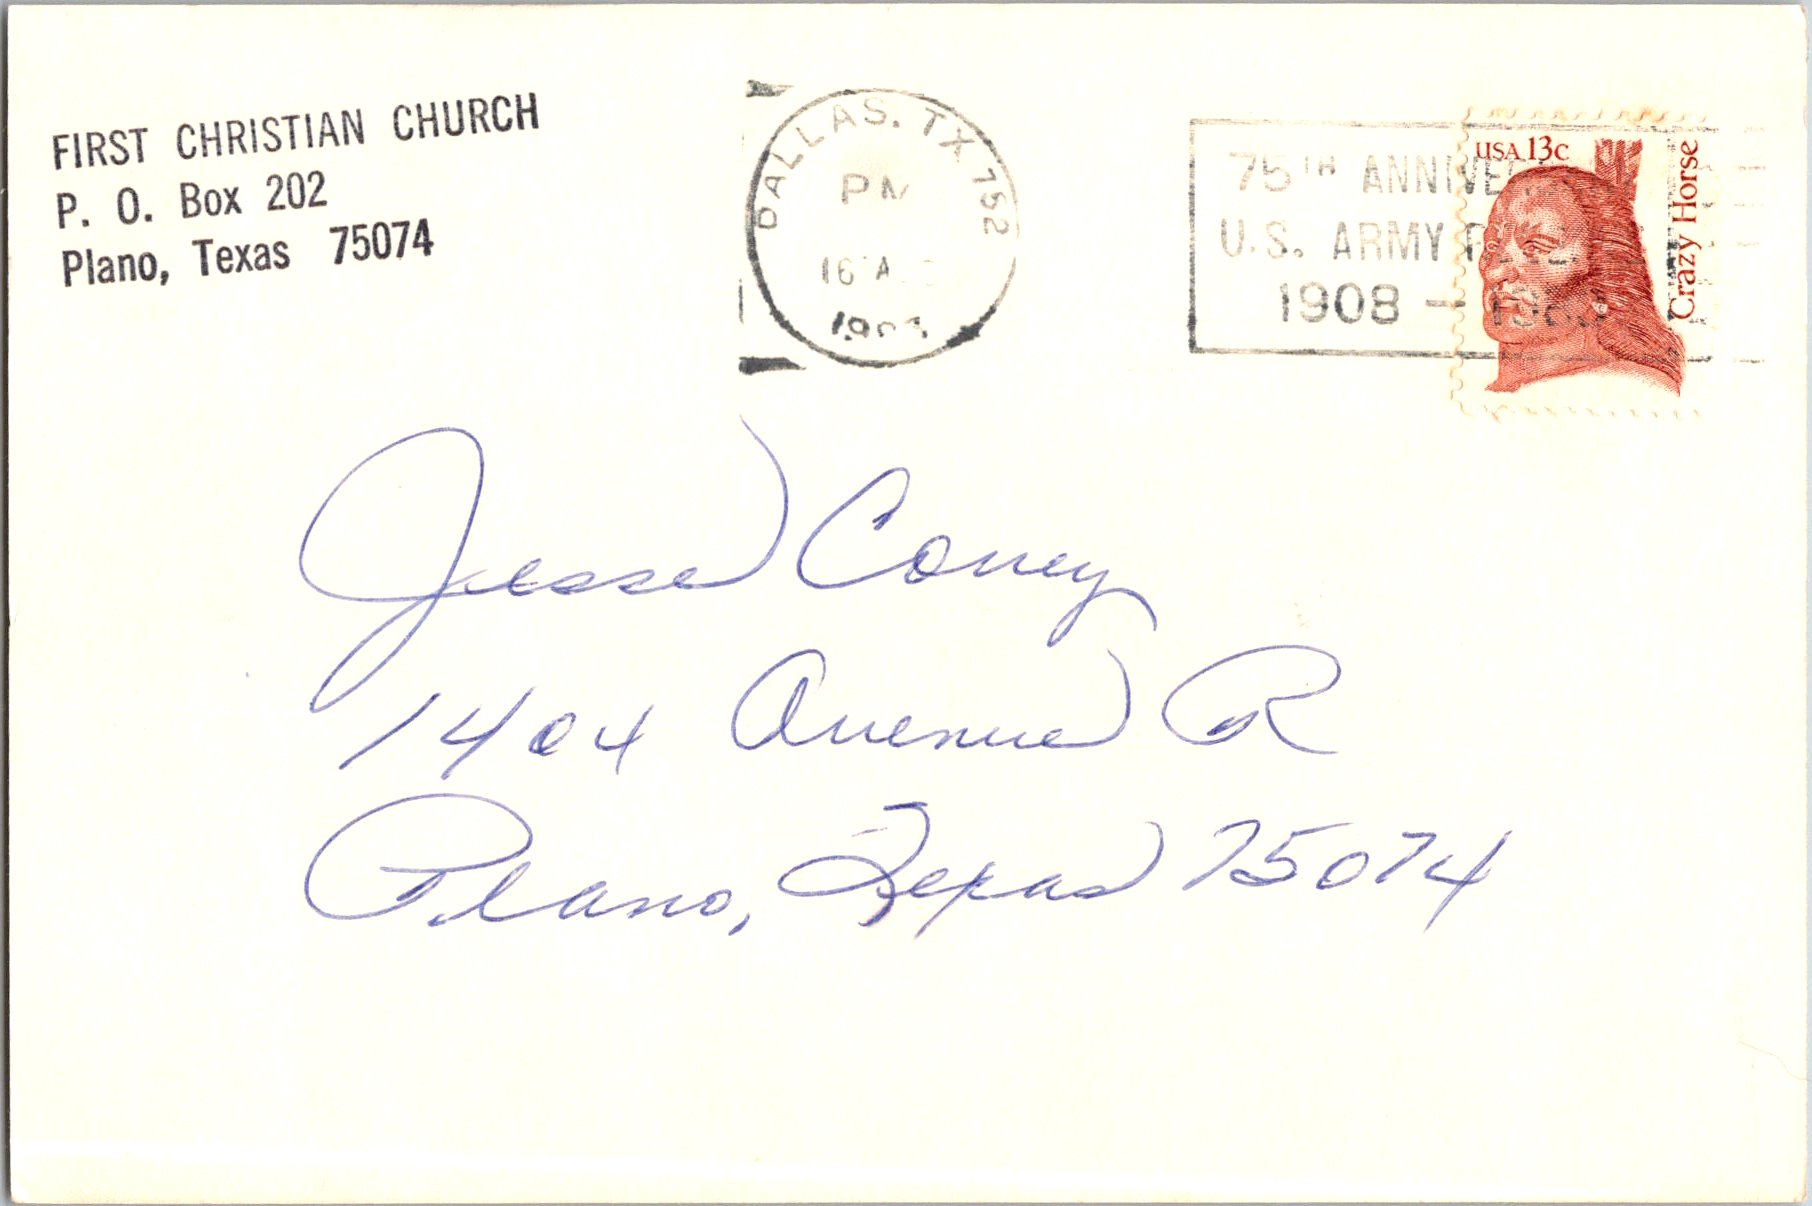 FIRST CHRISTIAN CHURCH
P. O. Box 202
Plano, Texas 75074
DALLAS, TX 752
PM
16 A
75TH ANNIVE
U.S. ARMY
1908 -
USA 13c
Crazy Horse
Jesse Coney
1404 Avenue R
Plano, Texas 75074